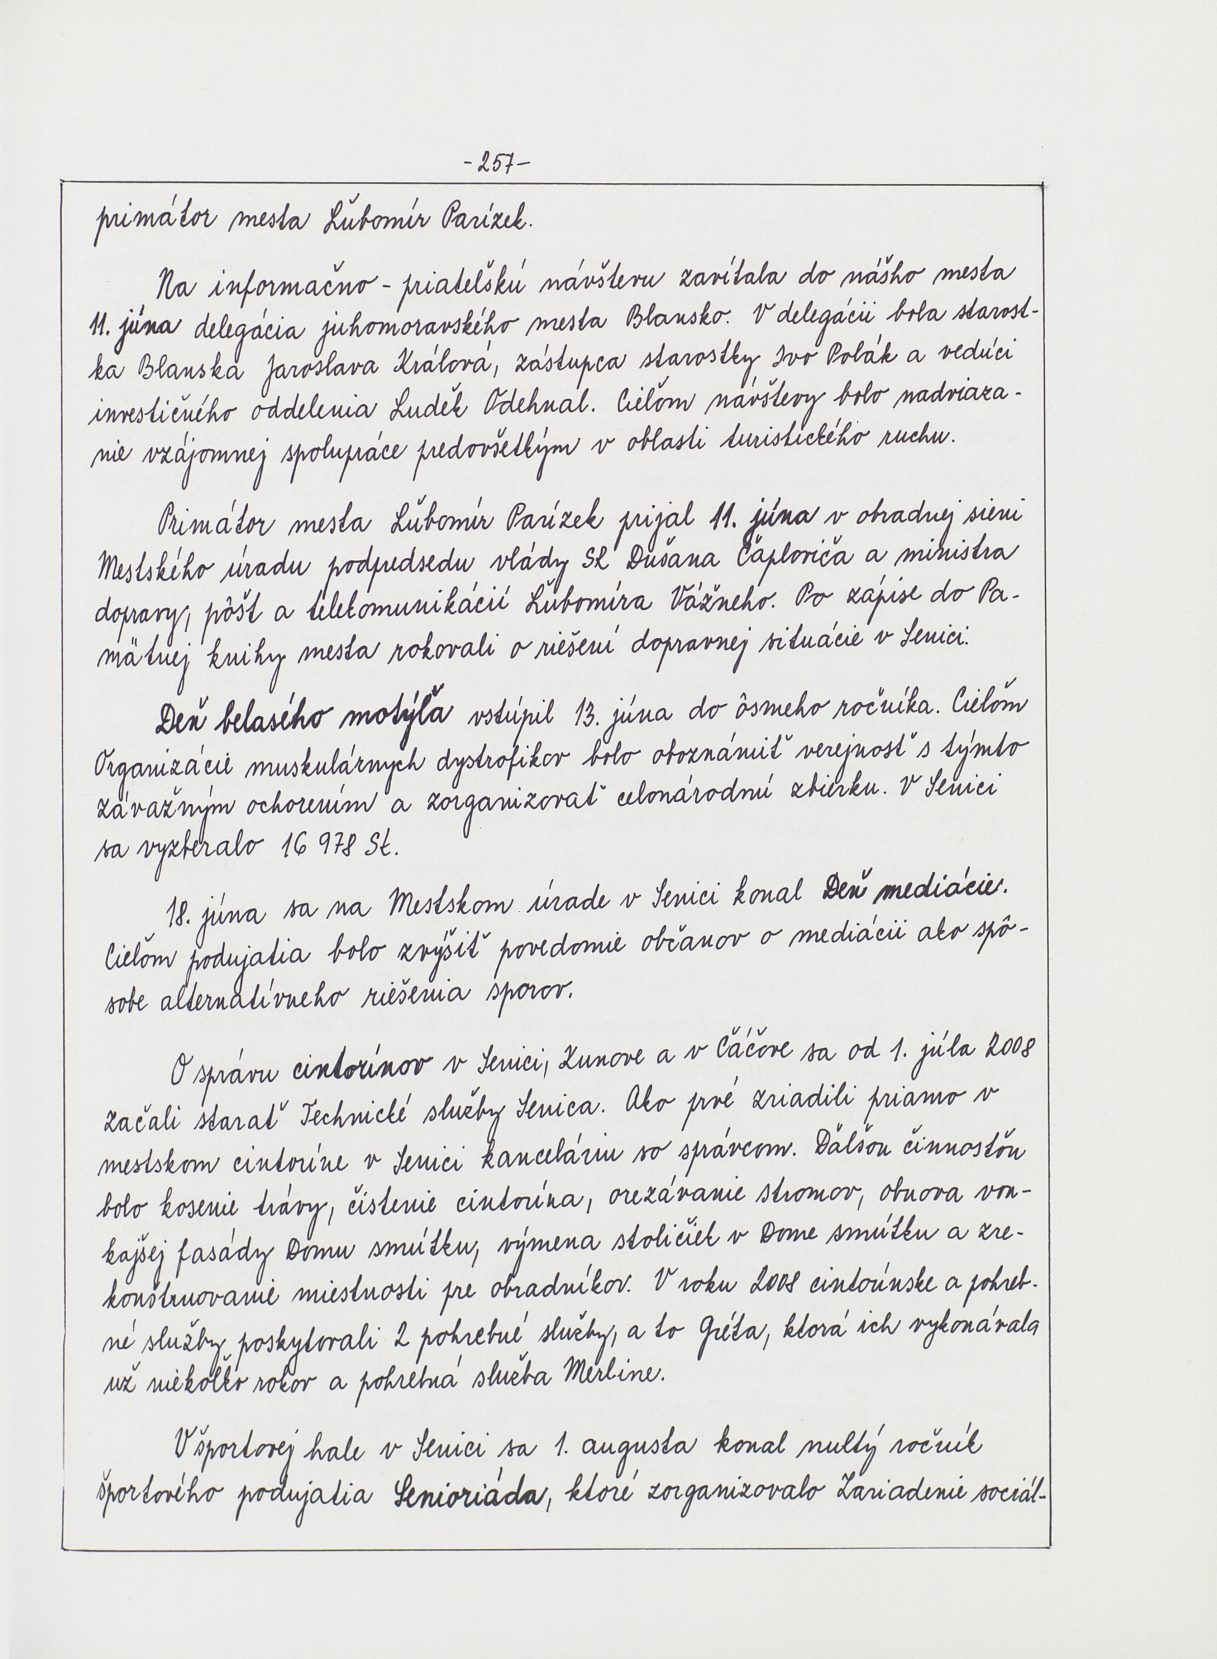 -257-
primátor mesta Ľubomír Parízek.
Na informačno - priateľskú návštevu zavítala do nášho mesta
11. júna delegácia juhomoravského mesta Blansko. V delegácii bola starost-
ka Blanska Jaroslava Králová, zástupca starostky Ivo Polák a vedúci
investičného oddelenia Luděk Odehnal. Cieľom návštevy bolo nadviaza-
nie vzájomnej spolupráce predovšetkým v oblasti turistického ruchu.
Primátor mesta Ľubomír Parízek prijal 11. júna v obradnej sieni
Mestského úradu podpredsedu vlády SR Dušana Čaploviča a ministra
dopravy, pôšt a telekomunikácií Ľubomíra Vážneho. Po zápise do Pa-
mätnej knihy mesta rokovali o riešení dopravnej situácie v Senici.
Deň belasého motýľa vstúpil 13. júna do ôsmeho ročníka. Cieľom
Organizácie muskulárnych dystrofikov bolo oboznámiť verejnosť s týmto
závažným ochorením a zorganizovať celonárodnú zbierku. V Senici
sa vyzberalo 16 978 Sk.
18. júna sa na Mestskom úrade v Senici konal Deň mediácie.
Cieľom podujatia bolo zvýšiť povedomie občanov o mediácii ako spô-
sobe alternatívneho riešenia sporov.
O správu cintorínov v Senici, Kunove a v Čáčove sa od 1. júla 2008
začali starať Technické služby Senica. Ako prvé zriadili priamo v
mestskom cintoríne v Senici kanceláriu so správcom. Ďalšou činnosťou
bolo kosenie trávy, čistenie cintorína, orezávanie stromov, obnova von-
kajšej fasády Domu smútku, výmena stoličiek v Dome smútku a zre-
konštruovanie miestnosti pre obradníkov. V roku 2008 cintorínske a pohreb-
né služby poskytovali 2 pohrebné služby, a to Gréta, ktorá ich vykonávala
už niekoľko rokov a pohrebná služba Merline.
V športovej hale v Senici sa 1. augusta konal nultý ročník
športového podujatia Senioriáda, ktoré zorganizovalo Zariadenie sociál-